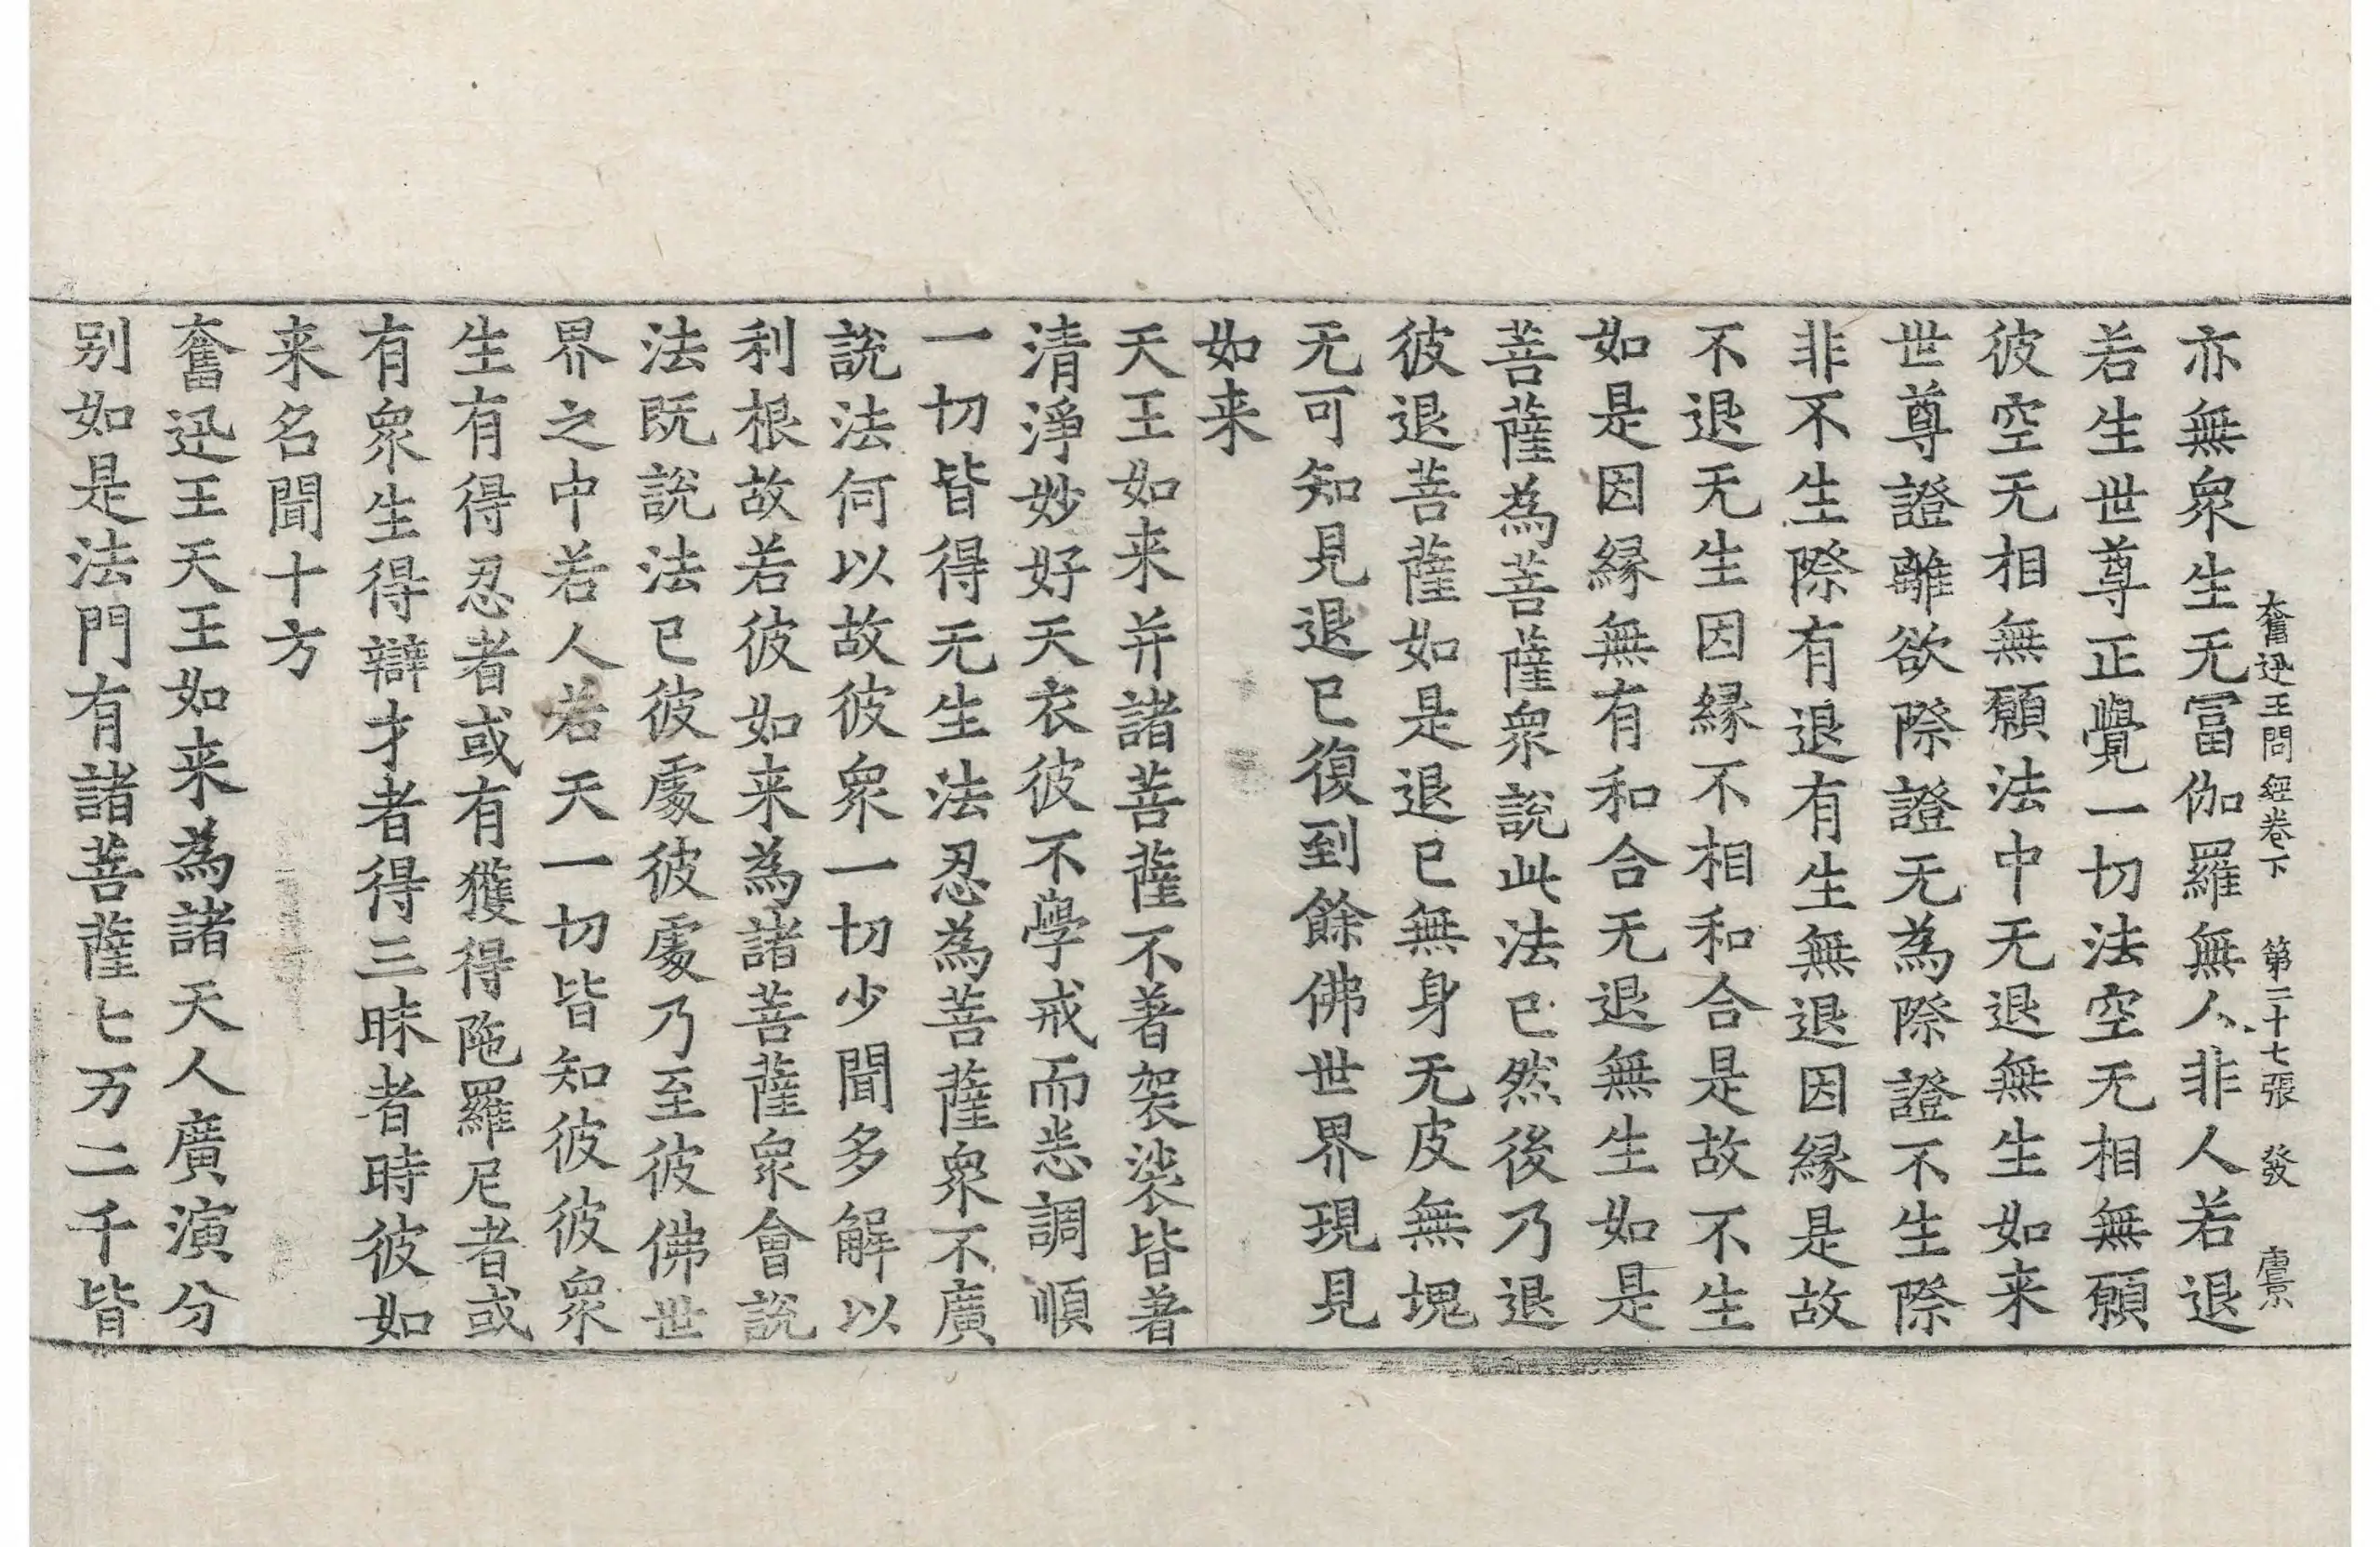 奮迅王問經卷下　第二十七張　發　虞景
亦無衆生无冨伽羅無人非人若退
若生世尊正覺一切法空无相無願
彼空无相無願法中无退無生如来
世尊證離欲際證无為際證不生際
非不生際有退有生無退因縁是故
不退无生因縁不相和合是故不生
如是因縁無有和合无退無生如是
菩薩為菩薩衆說此法已然後乃退
彼退菩薩如是退已無身无皮無塊
无可知見退已復到餘佛世界現見
如来
天王如来并諸菩薩不著袈裟皆著
清淨妙好天衣彼不學戒而恙調順
一切皆得无生法忍為菩薩衆不廣
說法何以故彼衆一切少聞多解以
利根故若彼如来為諸菩薩衆會說
法既說法已彼處彼處乃至彼佛世
界之中若人若天一切皆知彼彼衆
生有得忍者或有獲得陁羅尼者或
有衆生得辯才者得三昧者時彼如
来名聞十方
奮迅王天王如来為諸天人廣演分
别如是法門有諸菩薩七万二千皆